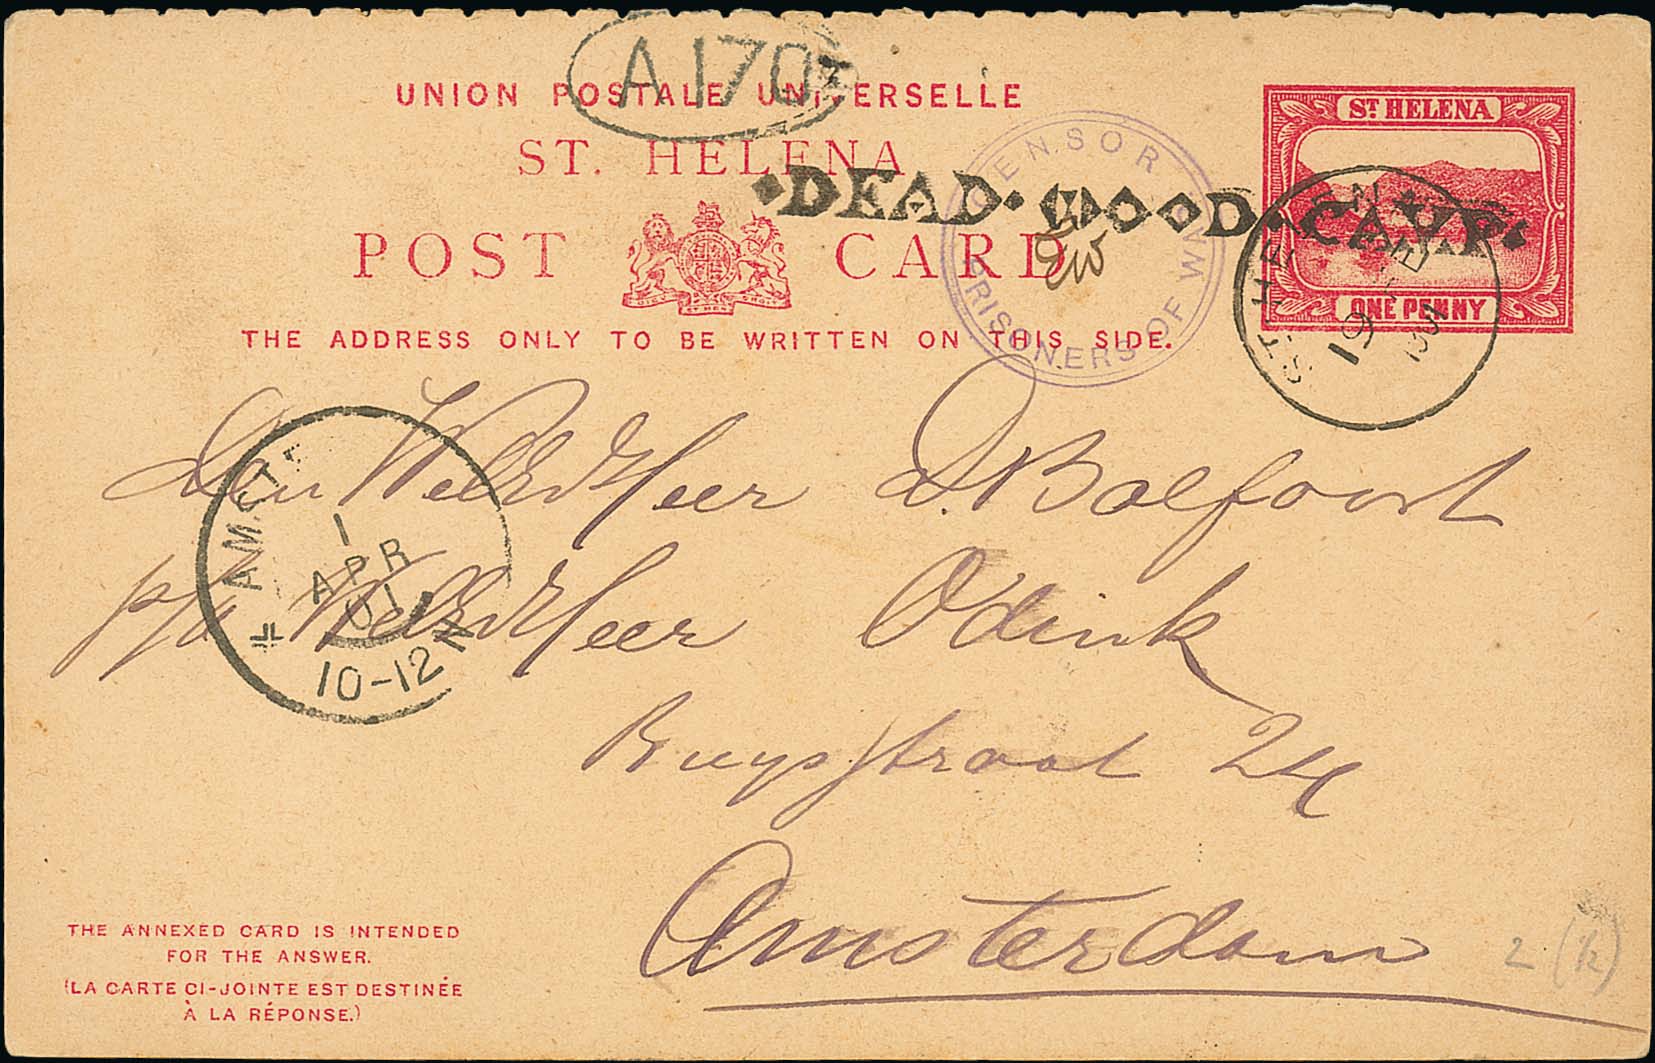 A 170
UNION POSTALE UNIVERSELLE
ST. HELENA
POST CARD
THE ADDRESS ONLY TO BE WRITTEN ON THIS SIDE.
ST. HELENA
ONE PENNY
CENSOR
PRISONERS OF WAR
DEAD WOOD CAMP
ST. HELENA
19 FE
1901
AMST
1
APR
01
10-12
Den WelEdHeer D. Balfoort
p/a WelEdHeer Odink
Ruysstraat 24
Amsterdam
THE ANNEXED CARD IS INTENDED
FOR THE ANSWER.
(LA CARTE CI-JOINTE EST DESTINÉE
À LA RÉPONSE.)